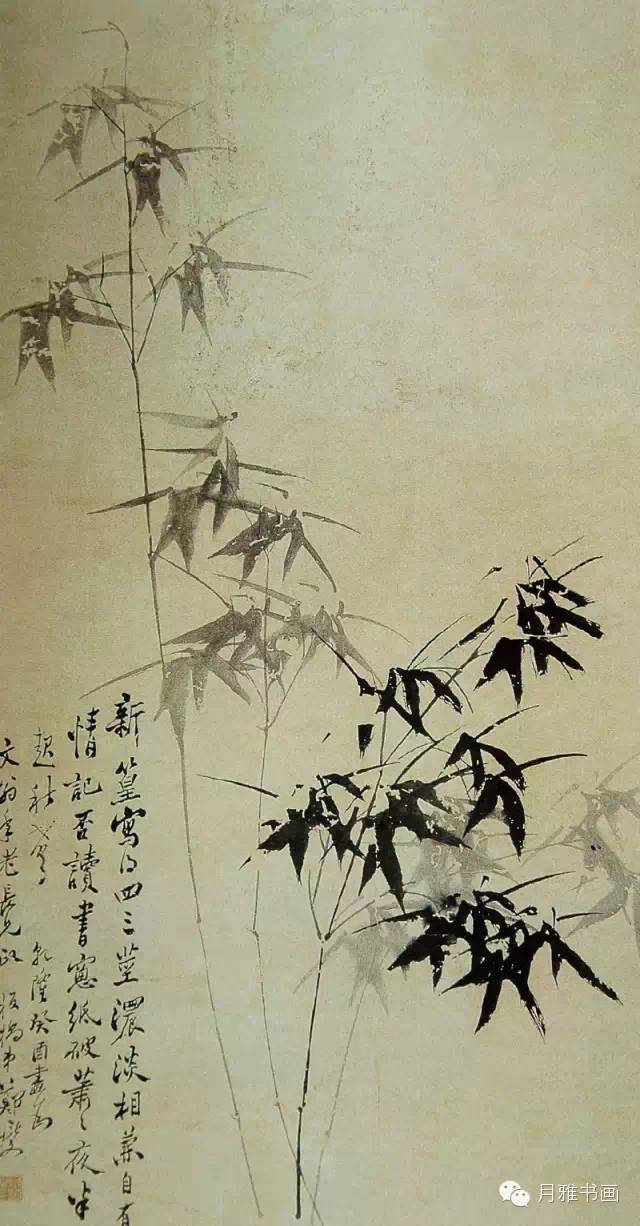 新篁寫得四三莖濃淡相兼自有
情記否讀書窓紙破蕭〻夜半
起秋聲 乾隆癸酉畫為
文翁年老長兄政 板橋弟鄭燮
月雅书画